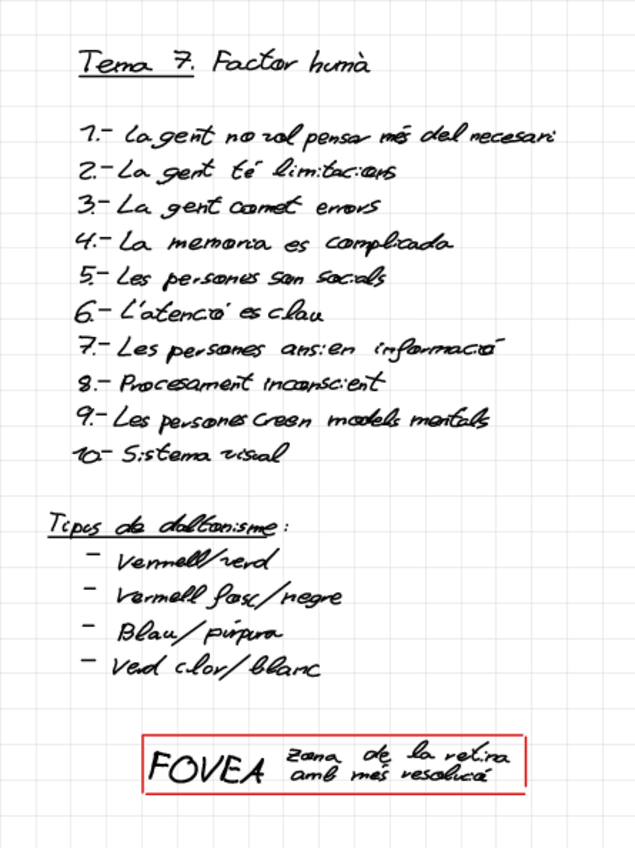 Tema 7. Factor humà
1.- La gent no vol pensar més del necesari
2.- La gent té limitacions
3.- La gent comet errors
4.- La memoria es complicada
5.- Les persones son socials
6.- L'atenció es clau
7.- Les persones ansien informació
8.- Procesament inconscient
9.- Les persones creen models mentals
10- Sistema visual
Tipus de daltonisme:
- Vermell/verd
- Vermell fosc/negre
- Blau/púrpura
- Verd clar/blanc
FOVEA zona de la retina
amb més resolució